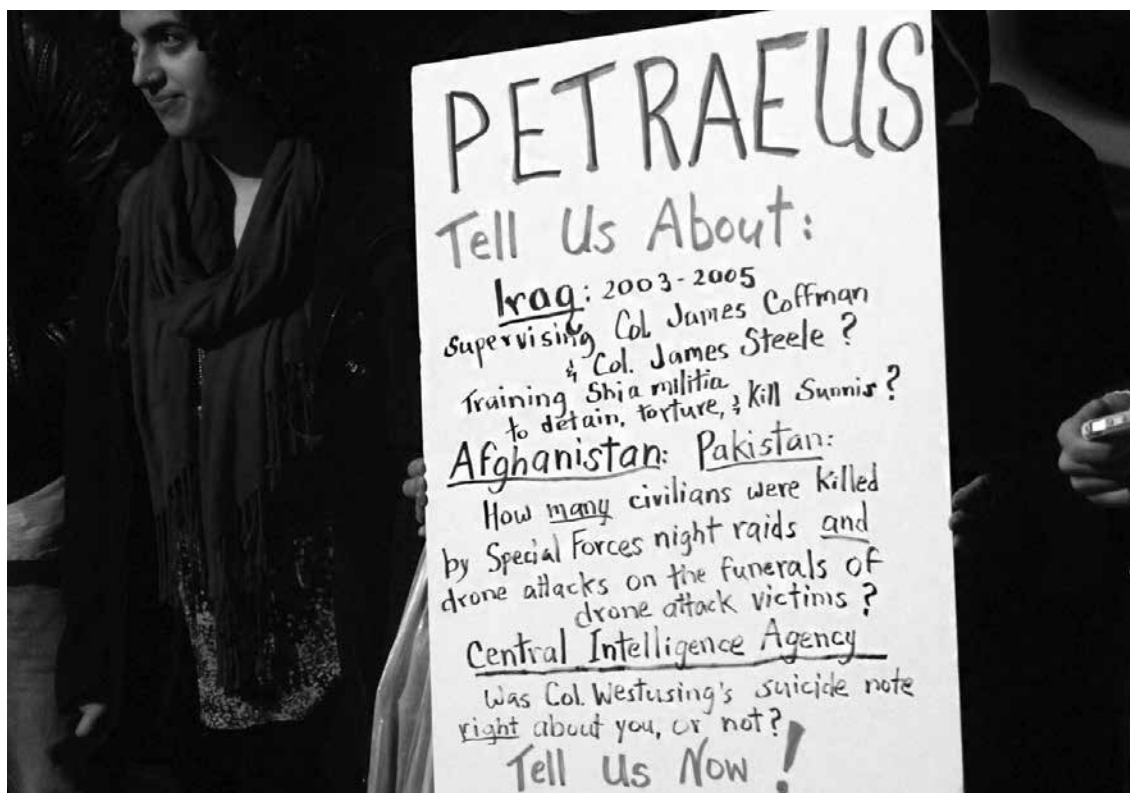 PETRAEUS
Tell Us About:
Iraq: 2003-2005
Supervising Col James Coffman
& Col. James Steele?
Training Shia militia
to detain, torture, & kill Sunnis?
Afghanistan: Pakistan:
How many civilians were killed
by Special Forces night raids and
drone attacks on the funerals of
drone attack victims?
Central Intelligence Agency
Was Col. Westusing's suicide note
right about you, or not?
Tell Us Now!